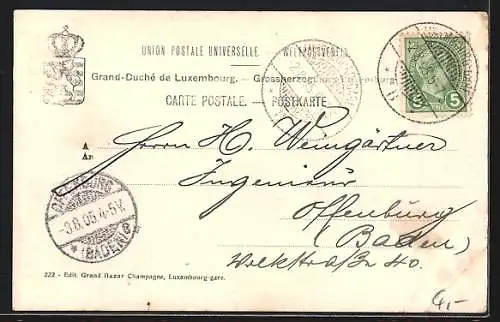 UNION POSTALE UNIVERSELLE. WELTPOSTVEREIN.
Grand-Duché de Luxembourg. — Grossherzogthum Luxemburg.
CARTE POSTALE. — POSTKARTE
5
A
An
Herrn H. Weingärtner
Ingenieur
Offenburg
(Baden)
OFFENBURG
-3.8.05.4-5V.
* (BADEN)
222 - Edit. Grand Bazar Champagne, Luxembourg-gare.
4,-